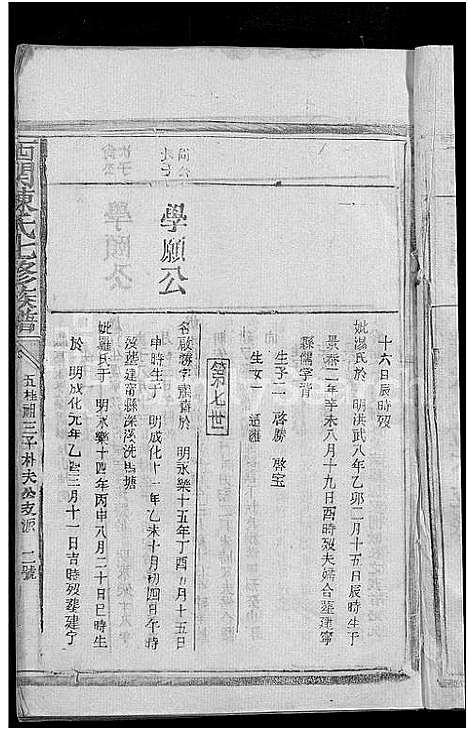 十六日辰時歿
妣湯氏於 明洪武八年乙卯二月十五日辰時生于
景泰二年辛未八月十九日酉時歿夫婦合塟建寧
縣儒學背
生子二 啓勝 啓宝
生女一 適
第七世
學頤公
名啟 字 於 明永樂十五年丁酉 月十五日
申時生于 明成化十一年乙未十月初四日午時
歿塟建甯縣深溪洗馬塘
妣羅氏于 明永樂十四年丙申八月二十日巳時生
於 明成化元年乙酉三月十一日吉時歿塟建宁
西門陳氏七修族譜
五桂 三子朴夫公支派 二號